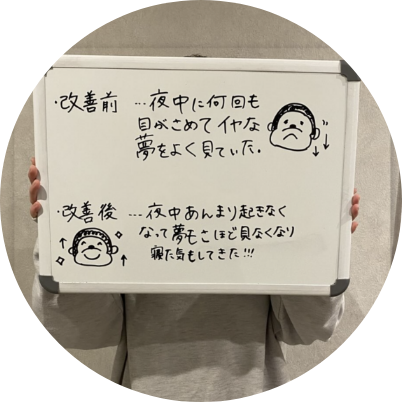 ・改善前 …夜中に何回も
目がさめてイヤな
夢をよく見ていた.
・改善後 …夜中あんまり起きなく
なって夢もさほど見なくなり
寝た気もしてきた!!!